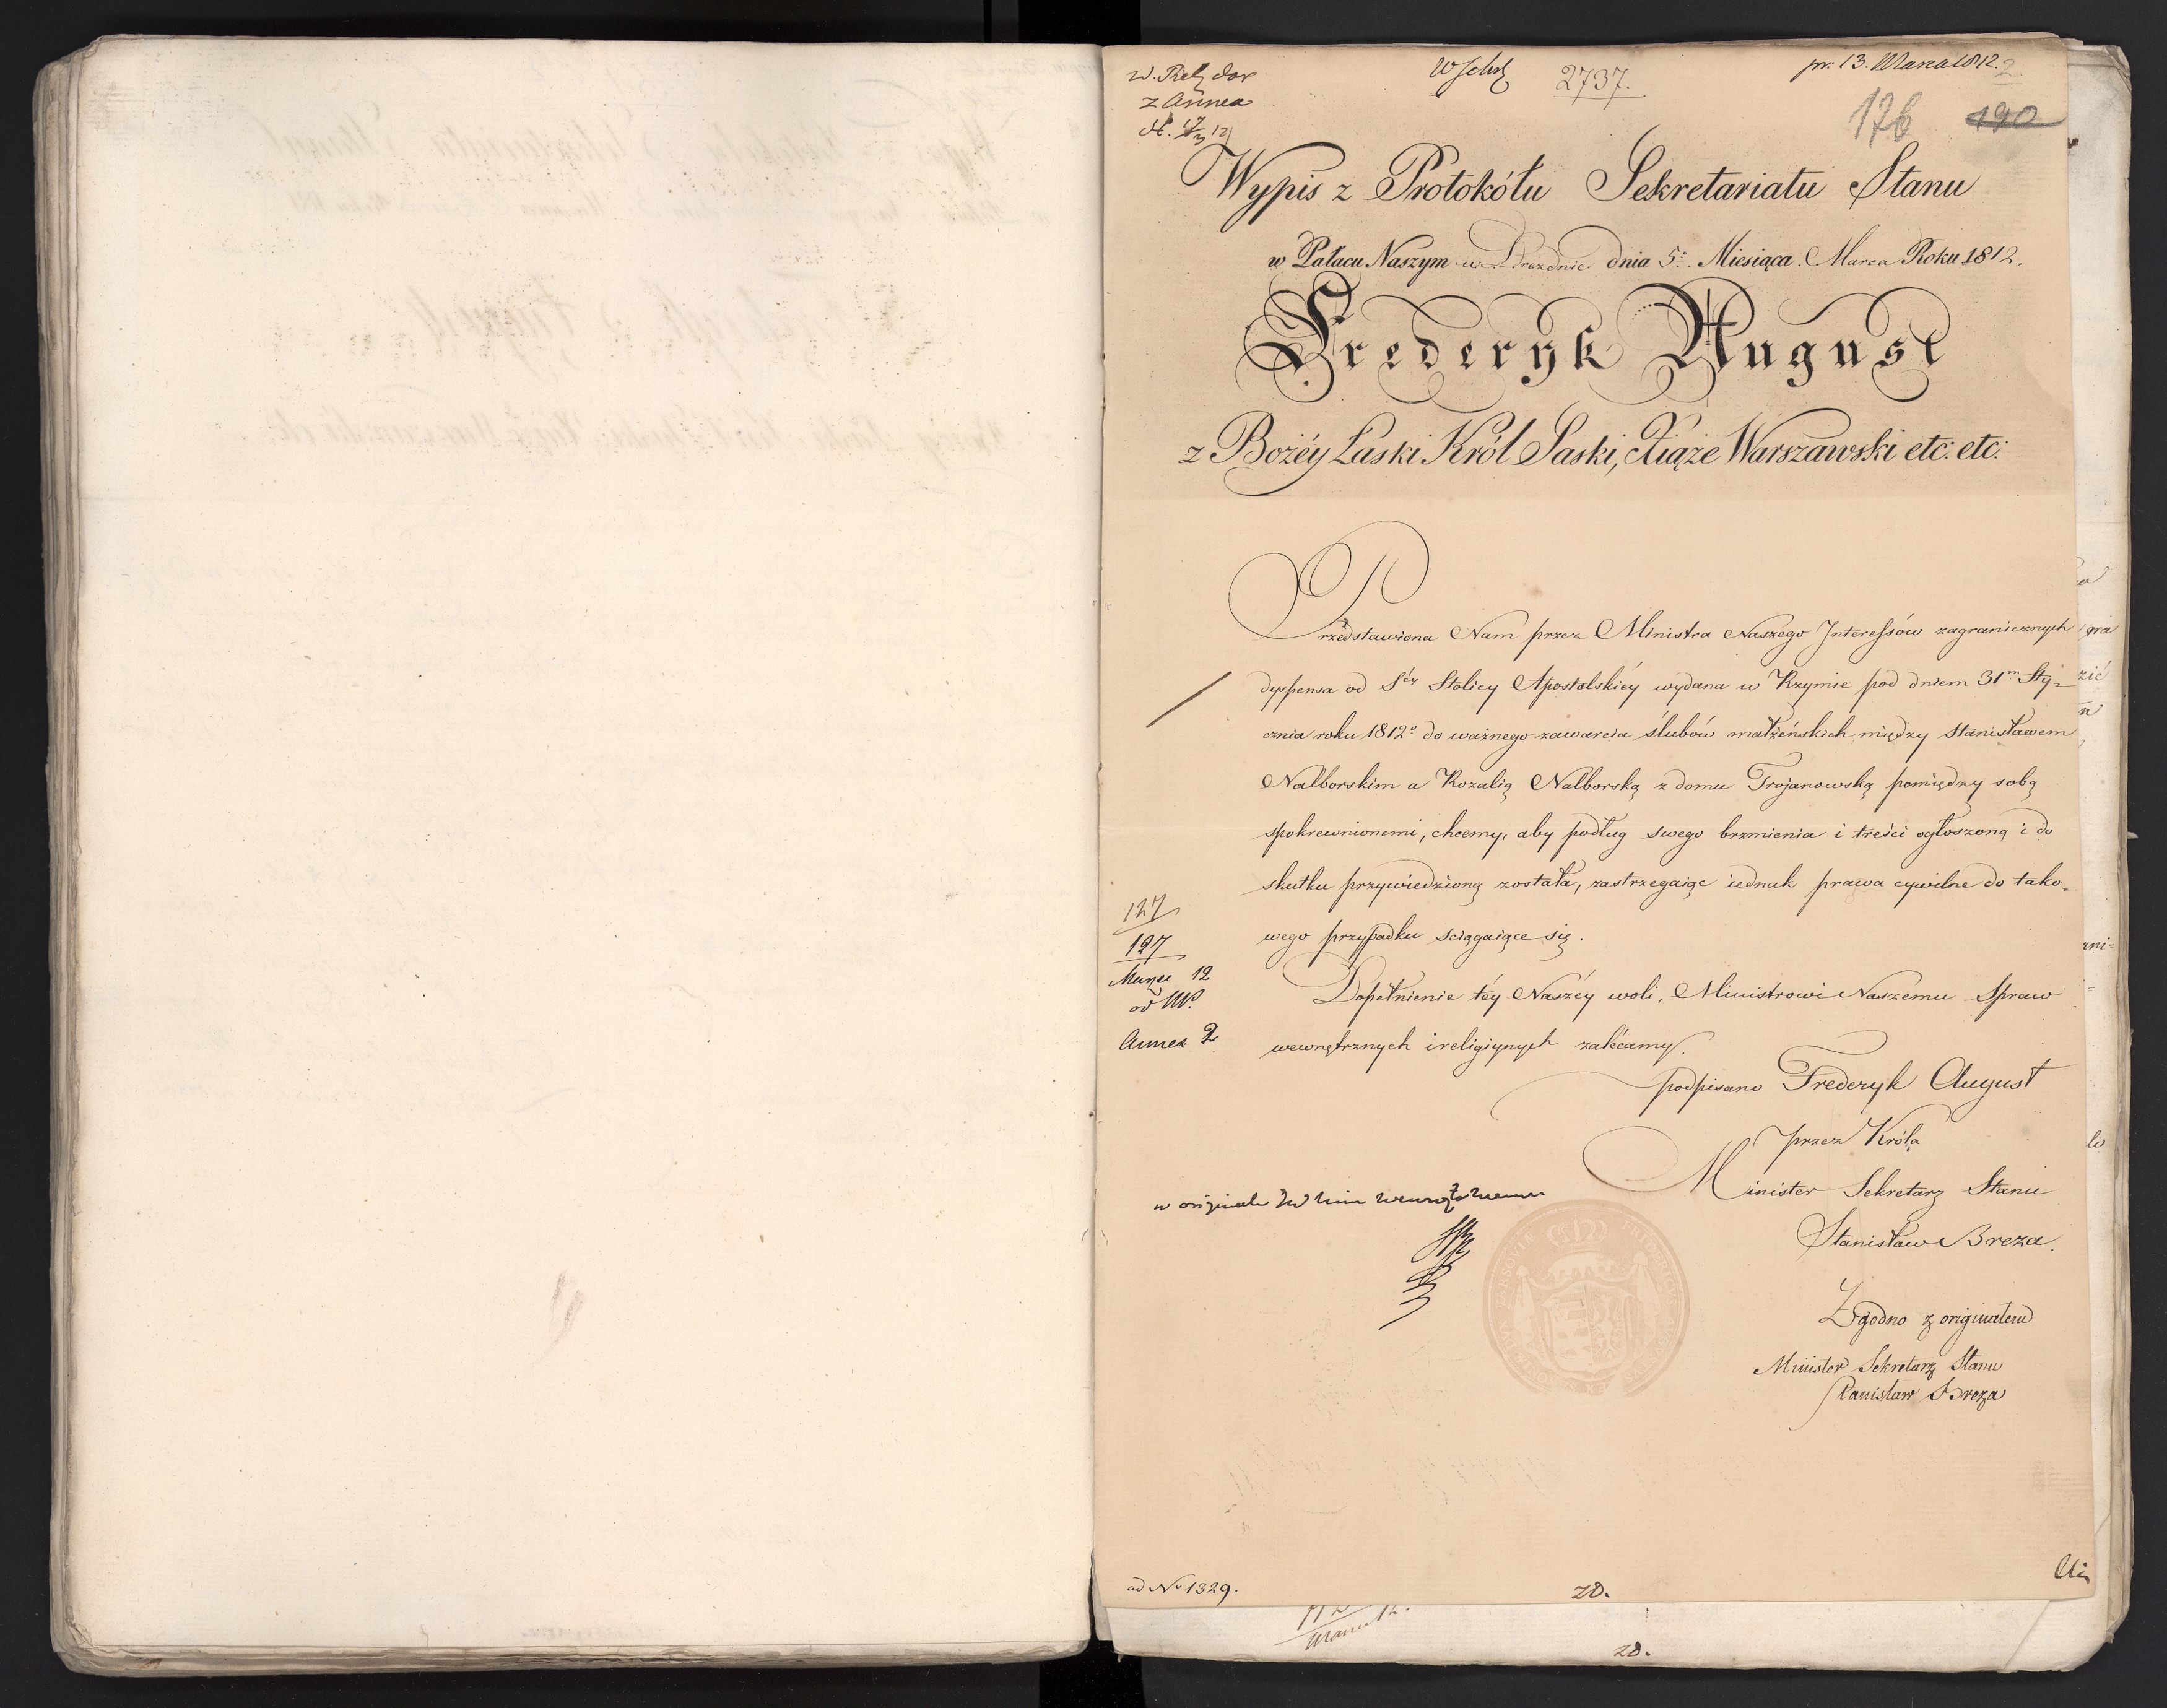 z Annex
2737.
pr. 13. Marca 1812.
2
176 190
Wypis z Protokółu Sekretariatu Stanu
w Pałacu Naszym w Dreznie dnia 5º. Miesiąca Marca Roku 1812.
Frederyk August
z Bożéy Łaski Król Saski, Xiąże Warszawski etc: etc:
Przedstawiona Nam przez Ministra Naszego Interessów zagranicznych
dyspensa od Séy Stolicy Apostolskiéy wydana w Rzymie pod dniem 31m Sty-
cznia roku 1812º do ważnego zawarcia ślubów małżeńskich między Stanisławem
Nalborskim a Rozalią Nalborską z domu Trojanowską pomiędzy sobą
spokrewnionemi, chcemy, aby podług swego brzmienia i treści ogłoszoną i do
skutku przywiedzioną została, zastrzegaiąc iednak prawa cywilne do tako-
wego przypadku sciągaiące się.
Dopełnienie téy Naszéy woli, Ministrowi Naszemu Spraw
wewnętrznych i religiynych zalécamy.
127
127
Marca 12
Annex 2
podpisano Frederyk August
przez Króla
Minister Sekretarz Stanu
Stanisław Breza.
w originale
Zgodno z originałem
Minister Sekretarz Stanu
Stanisław Breza
ad Nº 1329.
20.
20.